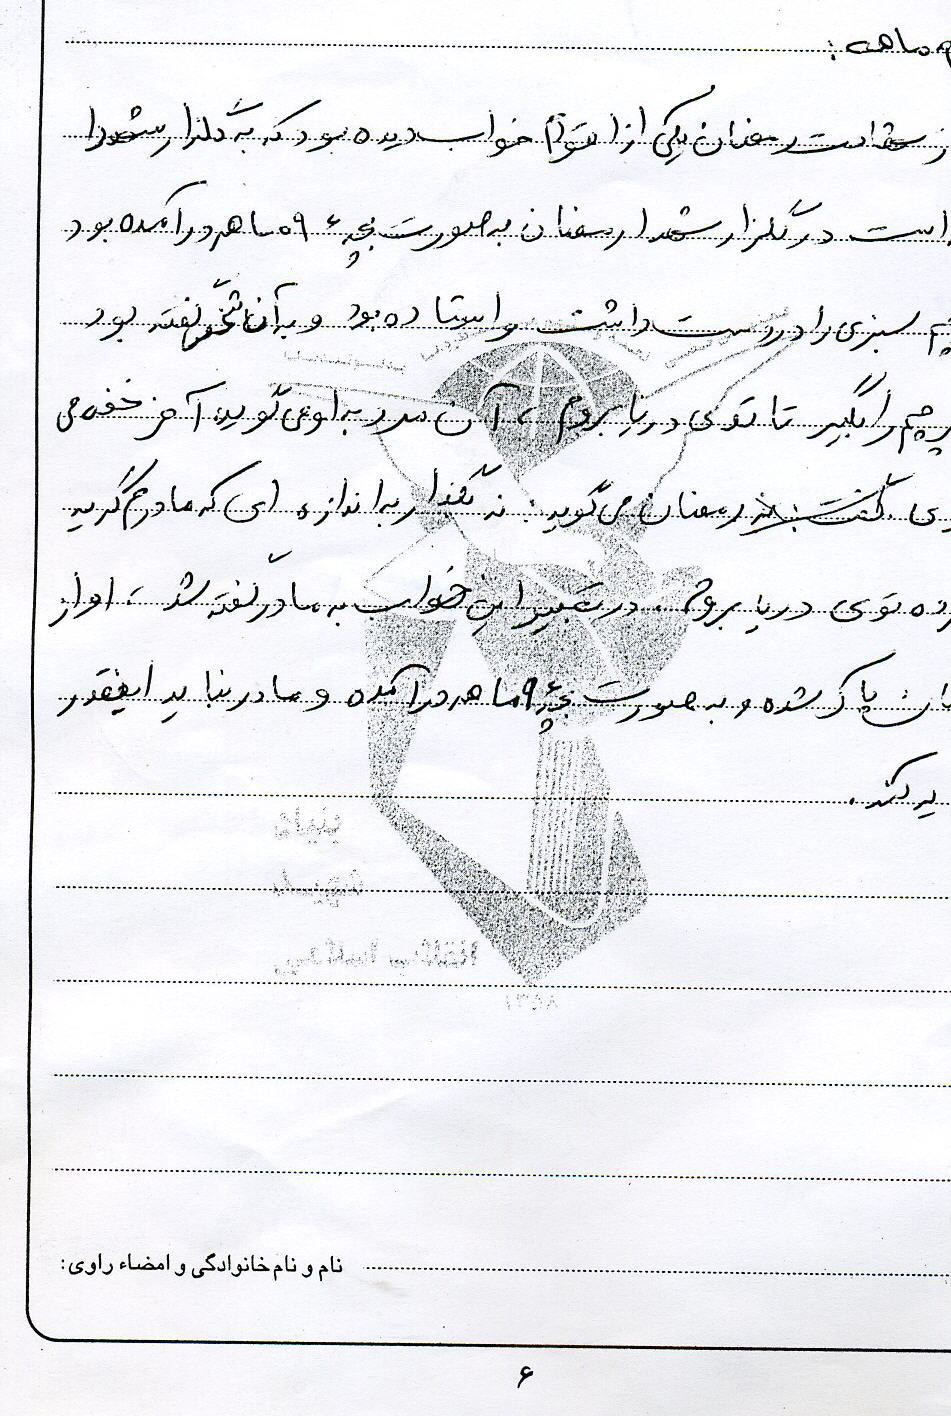 ماهه:
از شهادت رمضان یکی از اقوام خواب دیده بود که به گلزار شهدا
است در گلزار شهدا رمضان به صورت بچه ۶، ۹ ماهه در آمده بود
سبزی را در دست داشت و ایستاده بود و به آن شخص گفته بود
پرچم را بگیر تا توی دریا بروم، آن مرد به او می گوید، آخر خفه می
گفت: نه رمضان می گوید: نه بگذار به اندازه ای که مادرم گریه
توی دریا بروم. در تعبیر این خواب به مادر گفته شد، او از
پاک شده و به صورت بچه ۶، ۹ ماهه در آمده و مادر نباید اینقدر
کند.
نام و نام خانوادگی و امضاء راوی:
۶